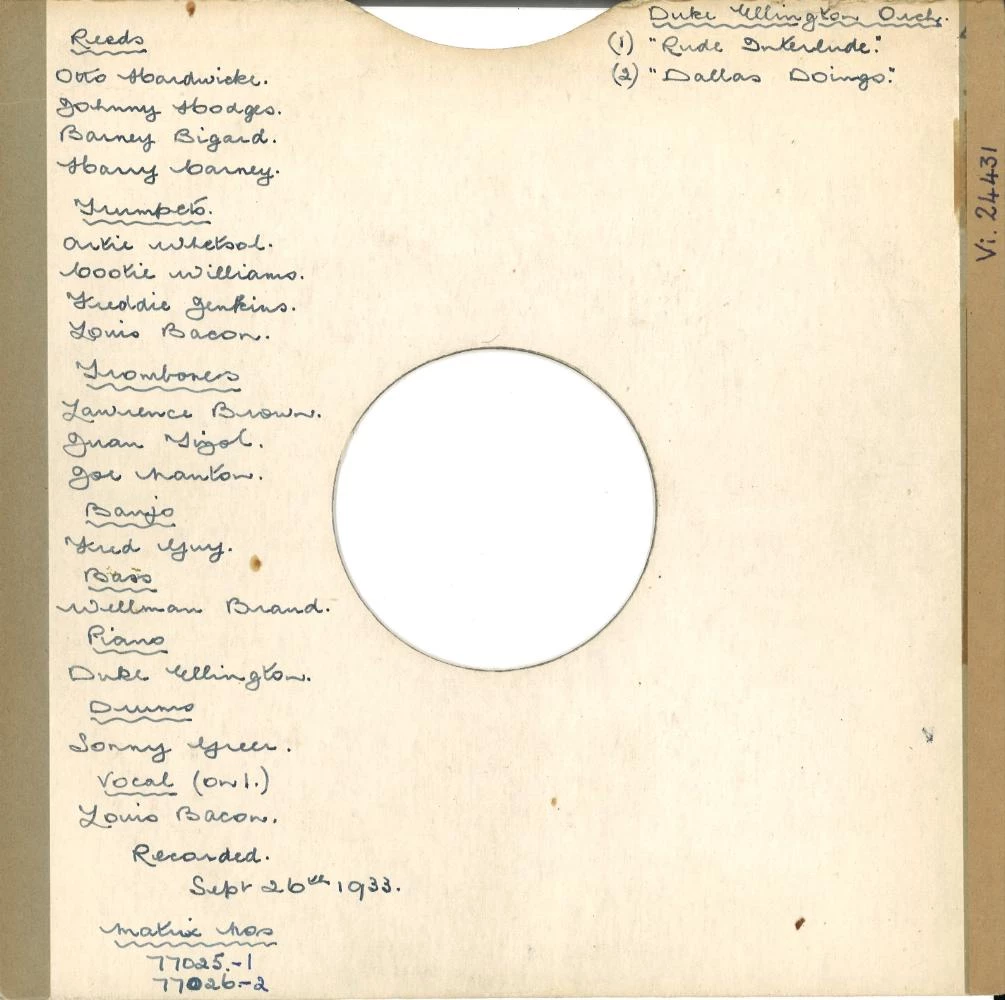 Duke Ellington Orch.
(1) "Rude Interlude."
(2) "Dallas Doings."
Vi. 24431
Reeds
Otto Hardwicke.
Johnny Hodges.
Barney Bigard.
Harry Carney.
Trumpets.
Artie Whetsol.
Cootie Williams.
Freddie Jenkins.
Louis Bacon.
Trombones
Lawrence Brown.
Juan Tizol.
Joe Nanton.
Banjo
Fred Guy.
Bass
Wellman Braud.
Piano
Duke Ellington.
Drums
Sonny Greer.
Vocal (on 1.)
Louis Bacon.
Recorded.
Sept 26th 1933.
Matrix Nos
77025.-1
77026-2